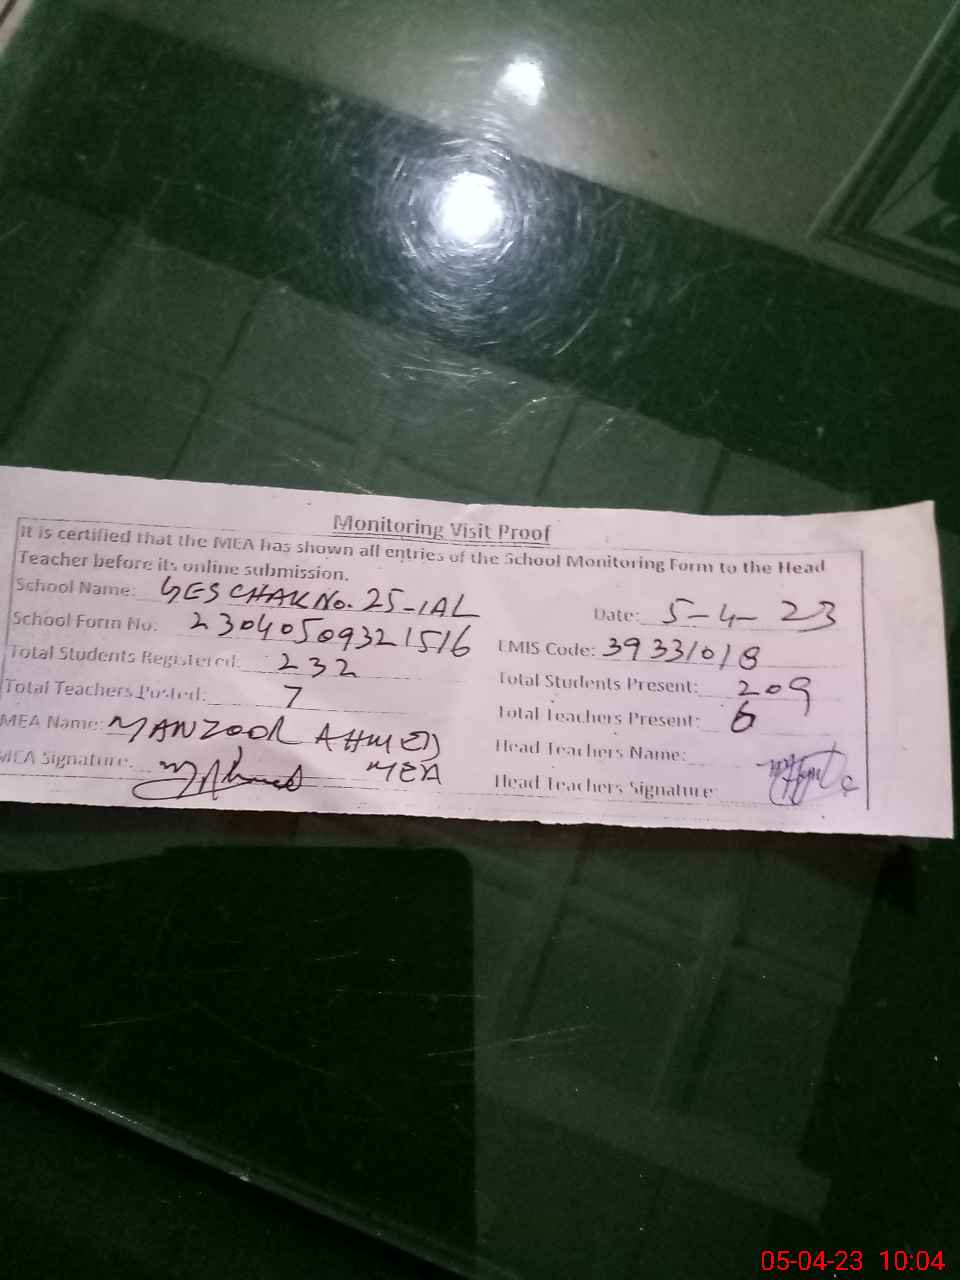 Monitoring Visit Proof
It is certified that the MEA has shown all entries of the School Monitoring Form to the Head
Teacher before its online submission.
School Name: GES CHAK No. 25-1AL Date: 5-4-23
School Form No: 23040509321516 EMIS Code: 39331018
Total Students Registered: 232 Total Students Present: 209
Total Teachers Posted: 7 Total Teachers Present: 6
MEA Name: MANZOOR AHMED Head Teachers Name:
MEA Signature: MEA Head Teachers Signature:
05-04-23 10:04